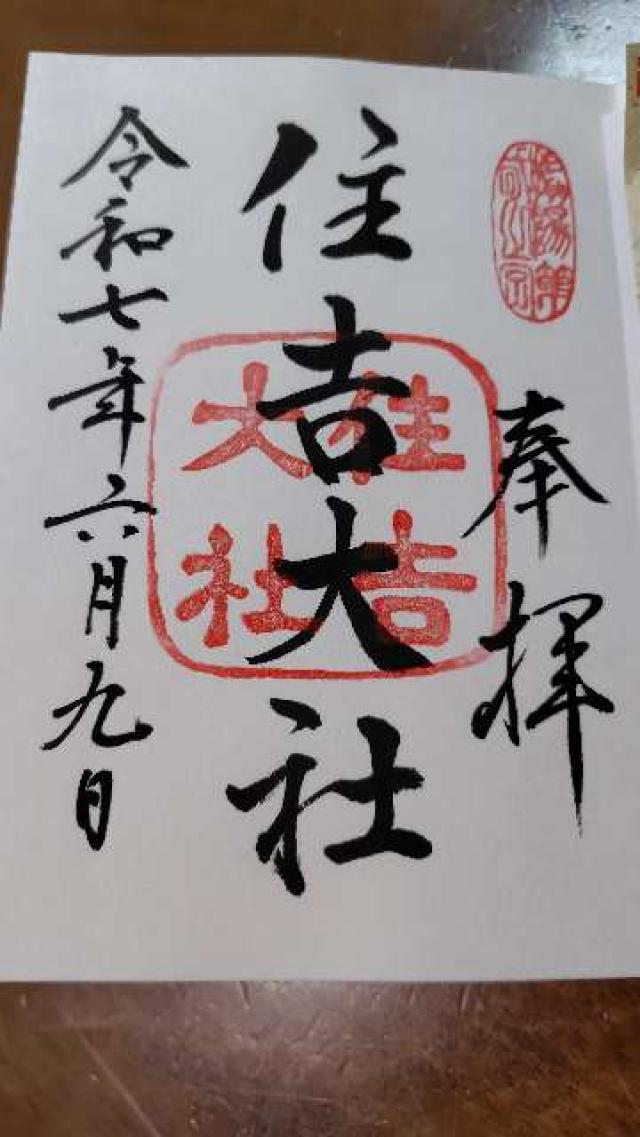 奉拝
住吉大社
住吉大社
令和七年六月九日